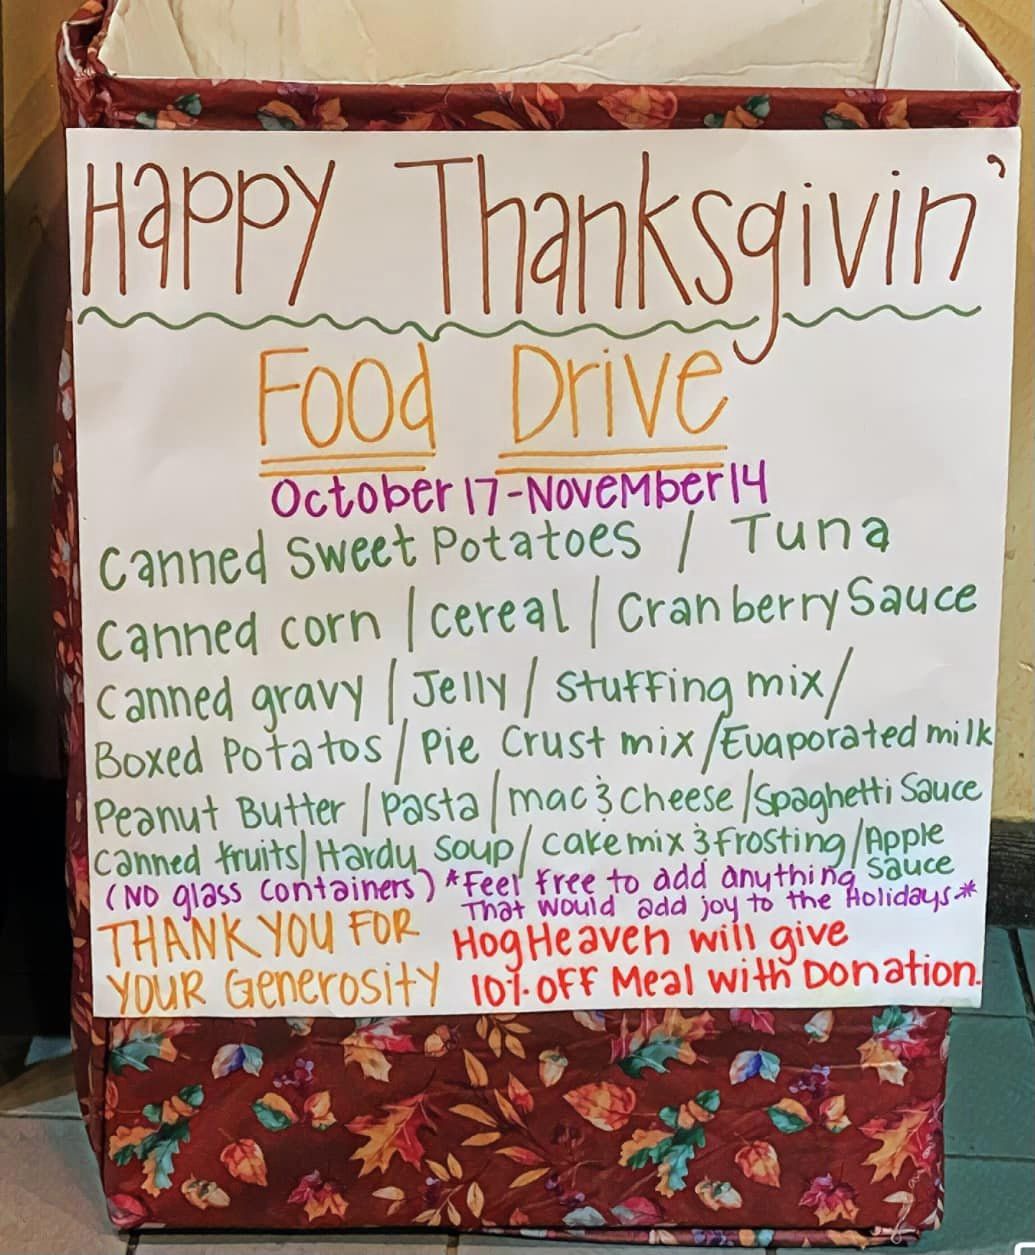 Happy Thanksgivin'
Food Drive
October 17-November 14
Canned Sweet Potatoes / Tuna
Canned corn / cereal / Cranberry Sauce
Canned gravy / Jelly / Stuffing mix /
Boxed Potatos / Pie Crust mix / Evaporated milk
Peanut Butter / pasta / mac & cheese / Spaghetti Sauce
Canned fruits / Hardy soup / cake mix & frosting / Apple Sauce
(No glass containers) *Feel free to add anything
That would add joy to the Holidays*
THANK YOU FOR
YOUR Generosity
Hog Heaven will give
10% OFF Meal with Donation.